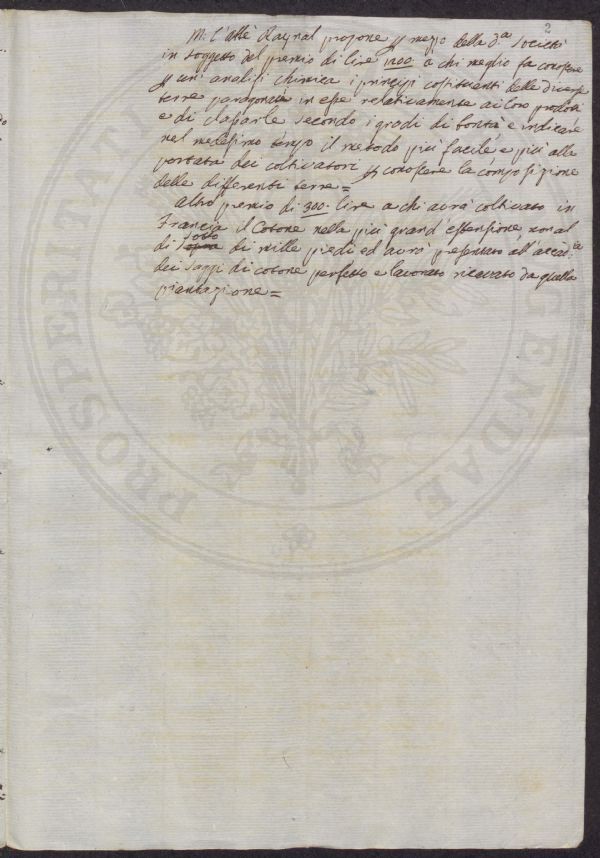 2
M. l'abbè Raynal propone p mezzo della d.a Società
in soggetto del premio di lire 1200 a chi meglio fa conoscere
p un' analisi chimica i principj costituenti delle diverse
terre paragonate in esse relativamente ai loro prodotti
e di classarle secondo i gradi di bontà e indicare
nel medesimo tempo il metodo più facile e più alla
portata dei coltivatori p conoscere la composizione
delle differenti terre =
altro premio di 300. lire a chi avrà coltivato in
Francia il Cotone nella più grand' estensione non al
di sotto di mille piedi ed avrà presentato all' accad.ia
dei saggi di cotone perfetto e lavorato ricavato da quella
piantagione =
PROSPERITATI AUGENDAE